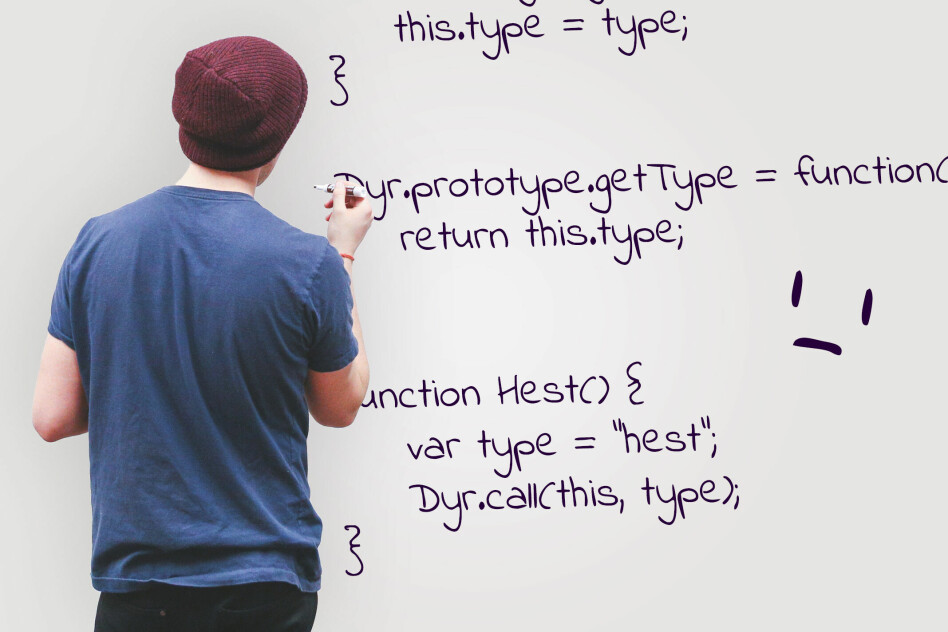 this.type = type;
}
Dyr.prototype.getType = function(
return this.type;
unction Hest() {
var type = "hest";
Dyr.call(this, type);
}